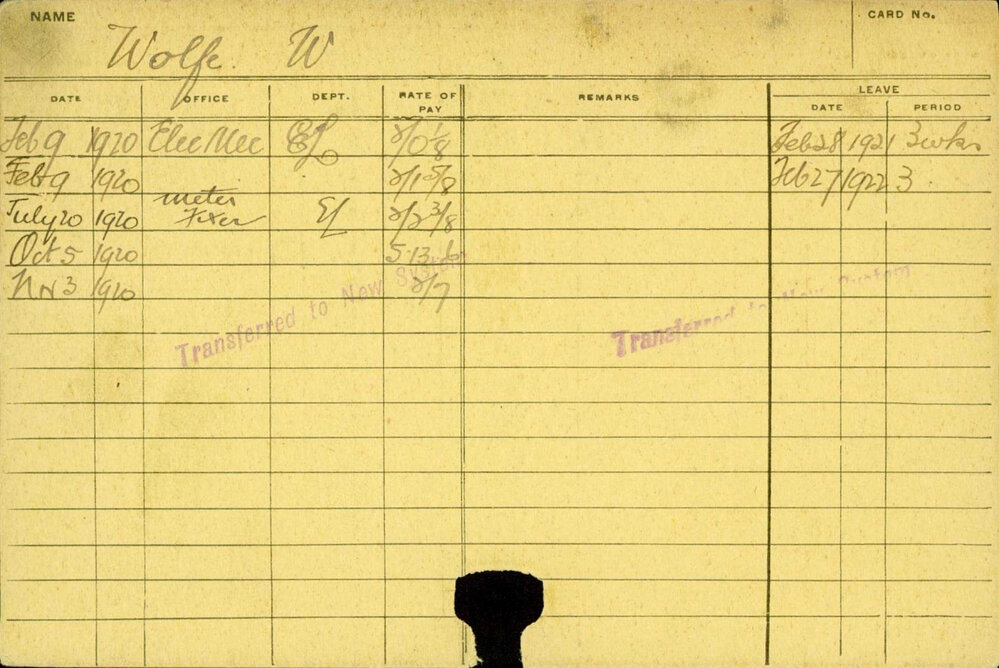 NAME
CARD No.
Wolfe W
DATE OFFICE DEPT. RATE OF PAY REMARKS LEAVE
DATE PERIOD
Feb 9 1920 Elec Mec EL 2/0 1/8 Feb 28 1921 3 wks
Feb 9 1920 2/1 5/8 Feb 27 1922 3
July 20 1920 meter Fixer EL 2/2 3/8
Oct 5 1920 5-13-6
Nov 3 1920 2/7
Transferred to New System
Transferred to New System